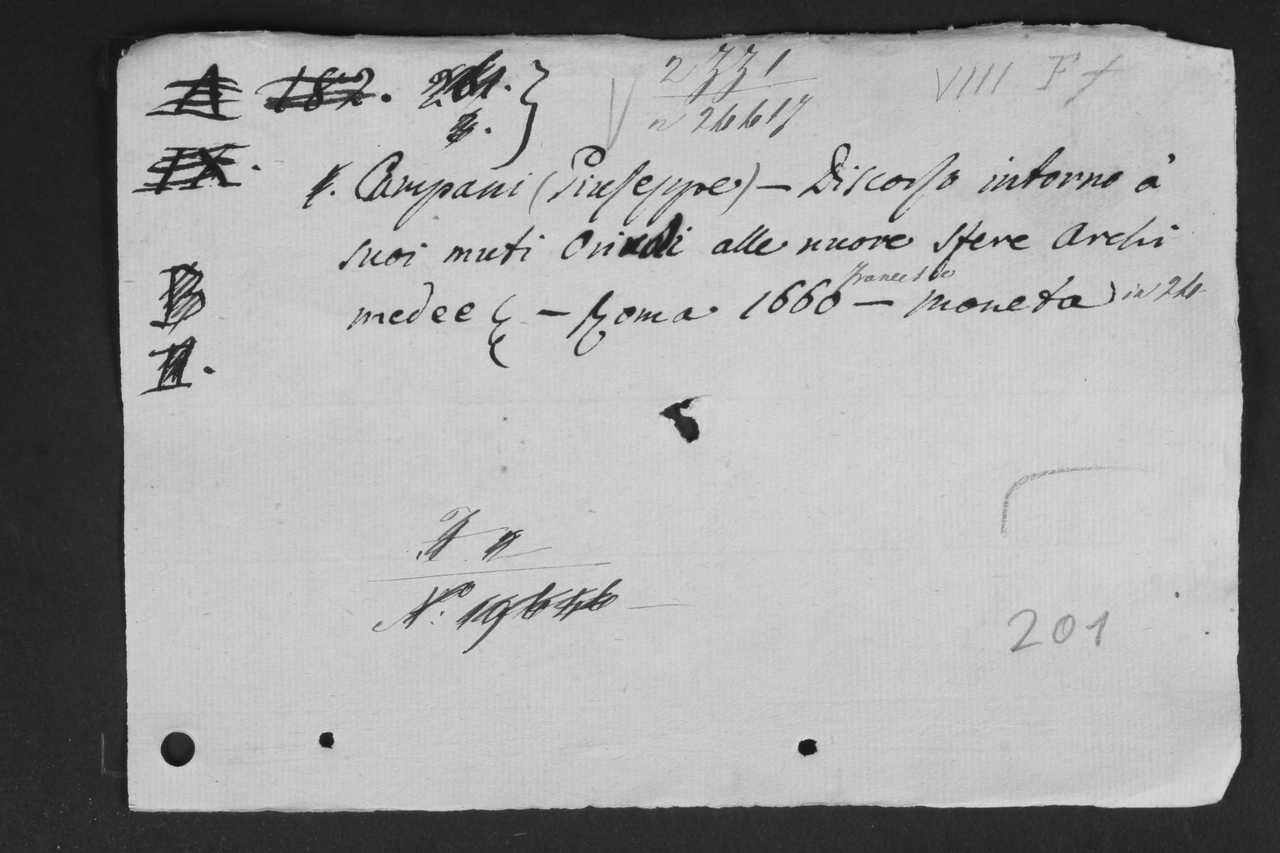 A 182.
IX.
2331
n 26617
VIII F
Campani (Giuseppe) — Discorso intorno à
suoi muti Oriuoli alle nuove sfere Archi
medee — Roma 1660 — Francesco Moneta in 24
B
II.
N.º 19646
201